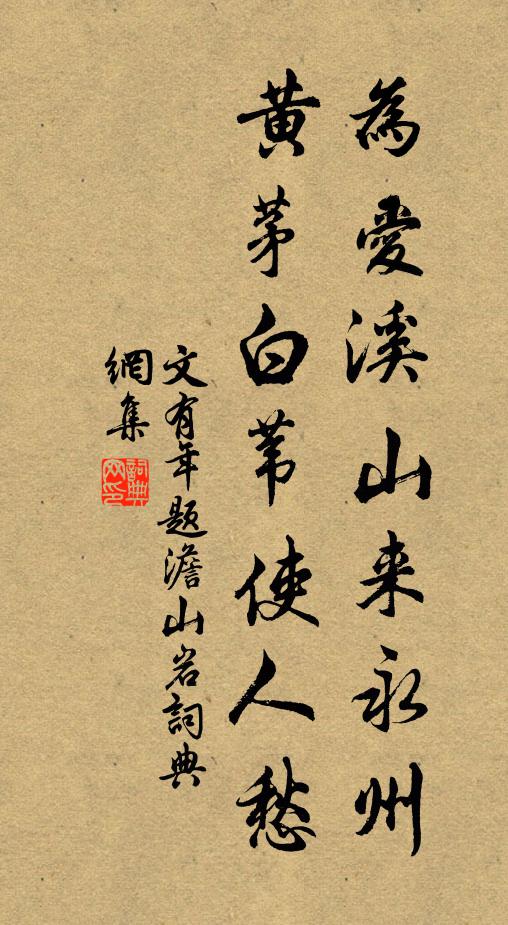 為愛溪山来永州
黄茅白苇使人愁
文有年題澹山岩詞典
網集
詞典网印